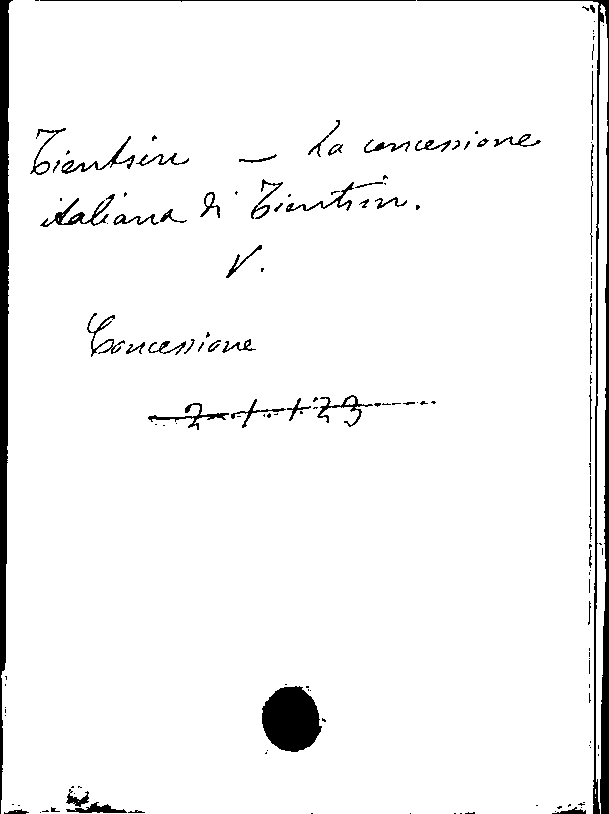 Tientsin — La concessione
italiana di Tientsin.
V.
Concessione
2.1.123